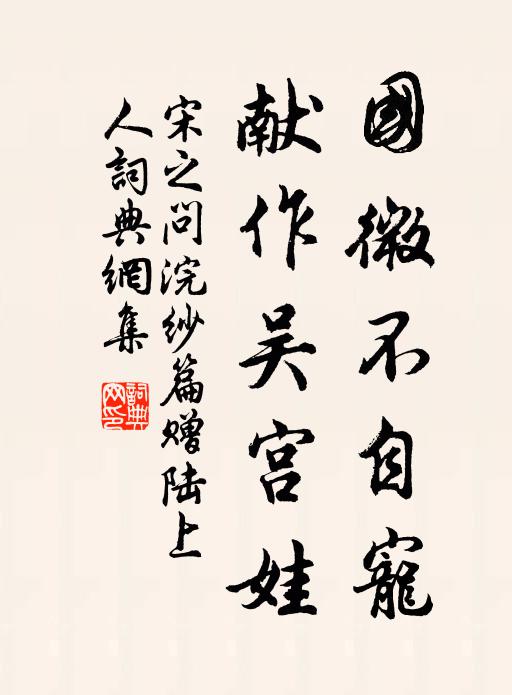 國微不自寵
献作吴宫娃
宋之问浣纱篇赠陆上
人詞典網集
詞典
网印